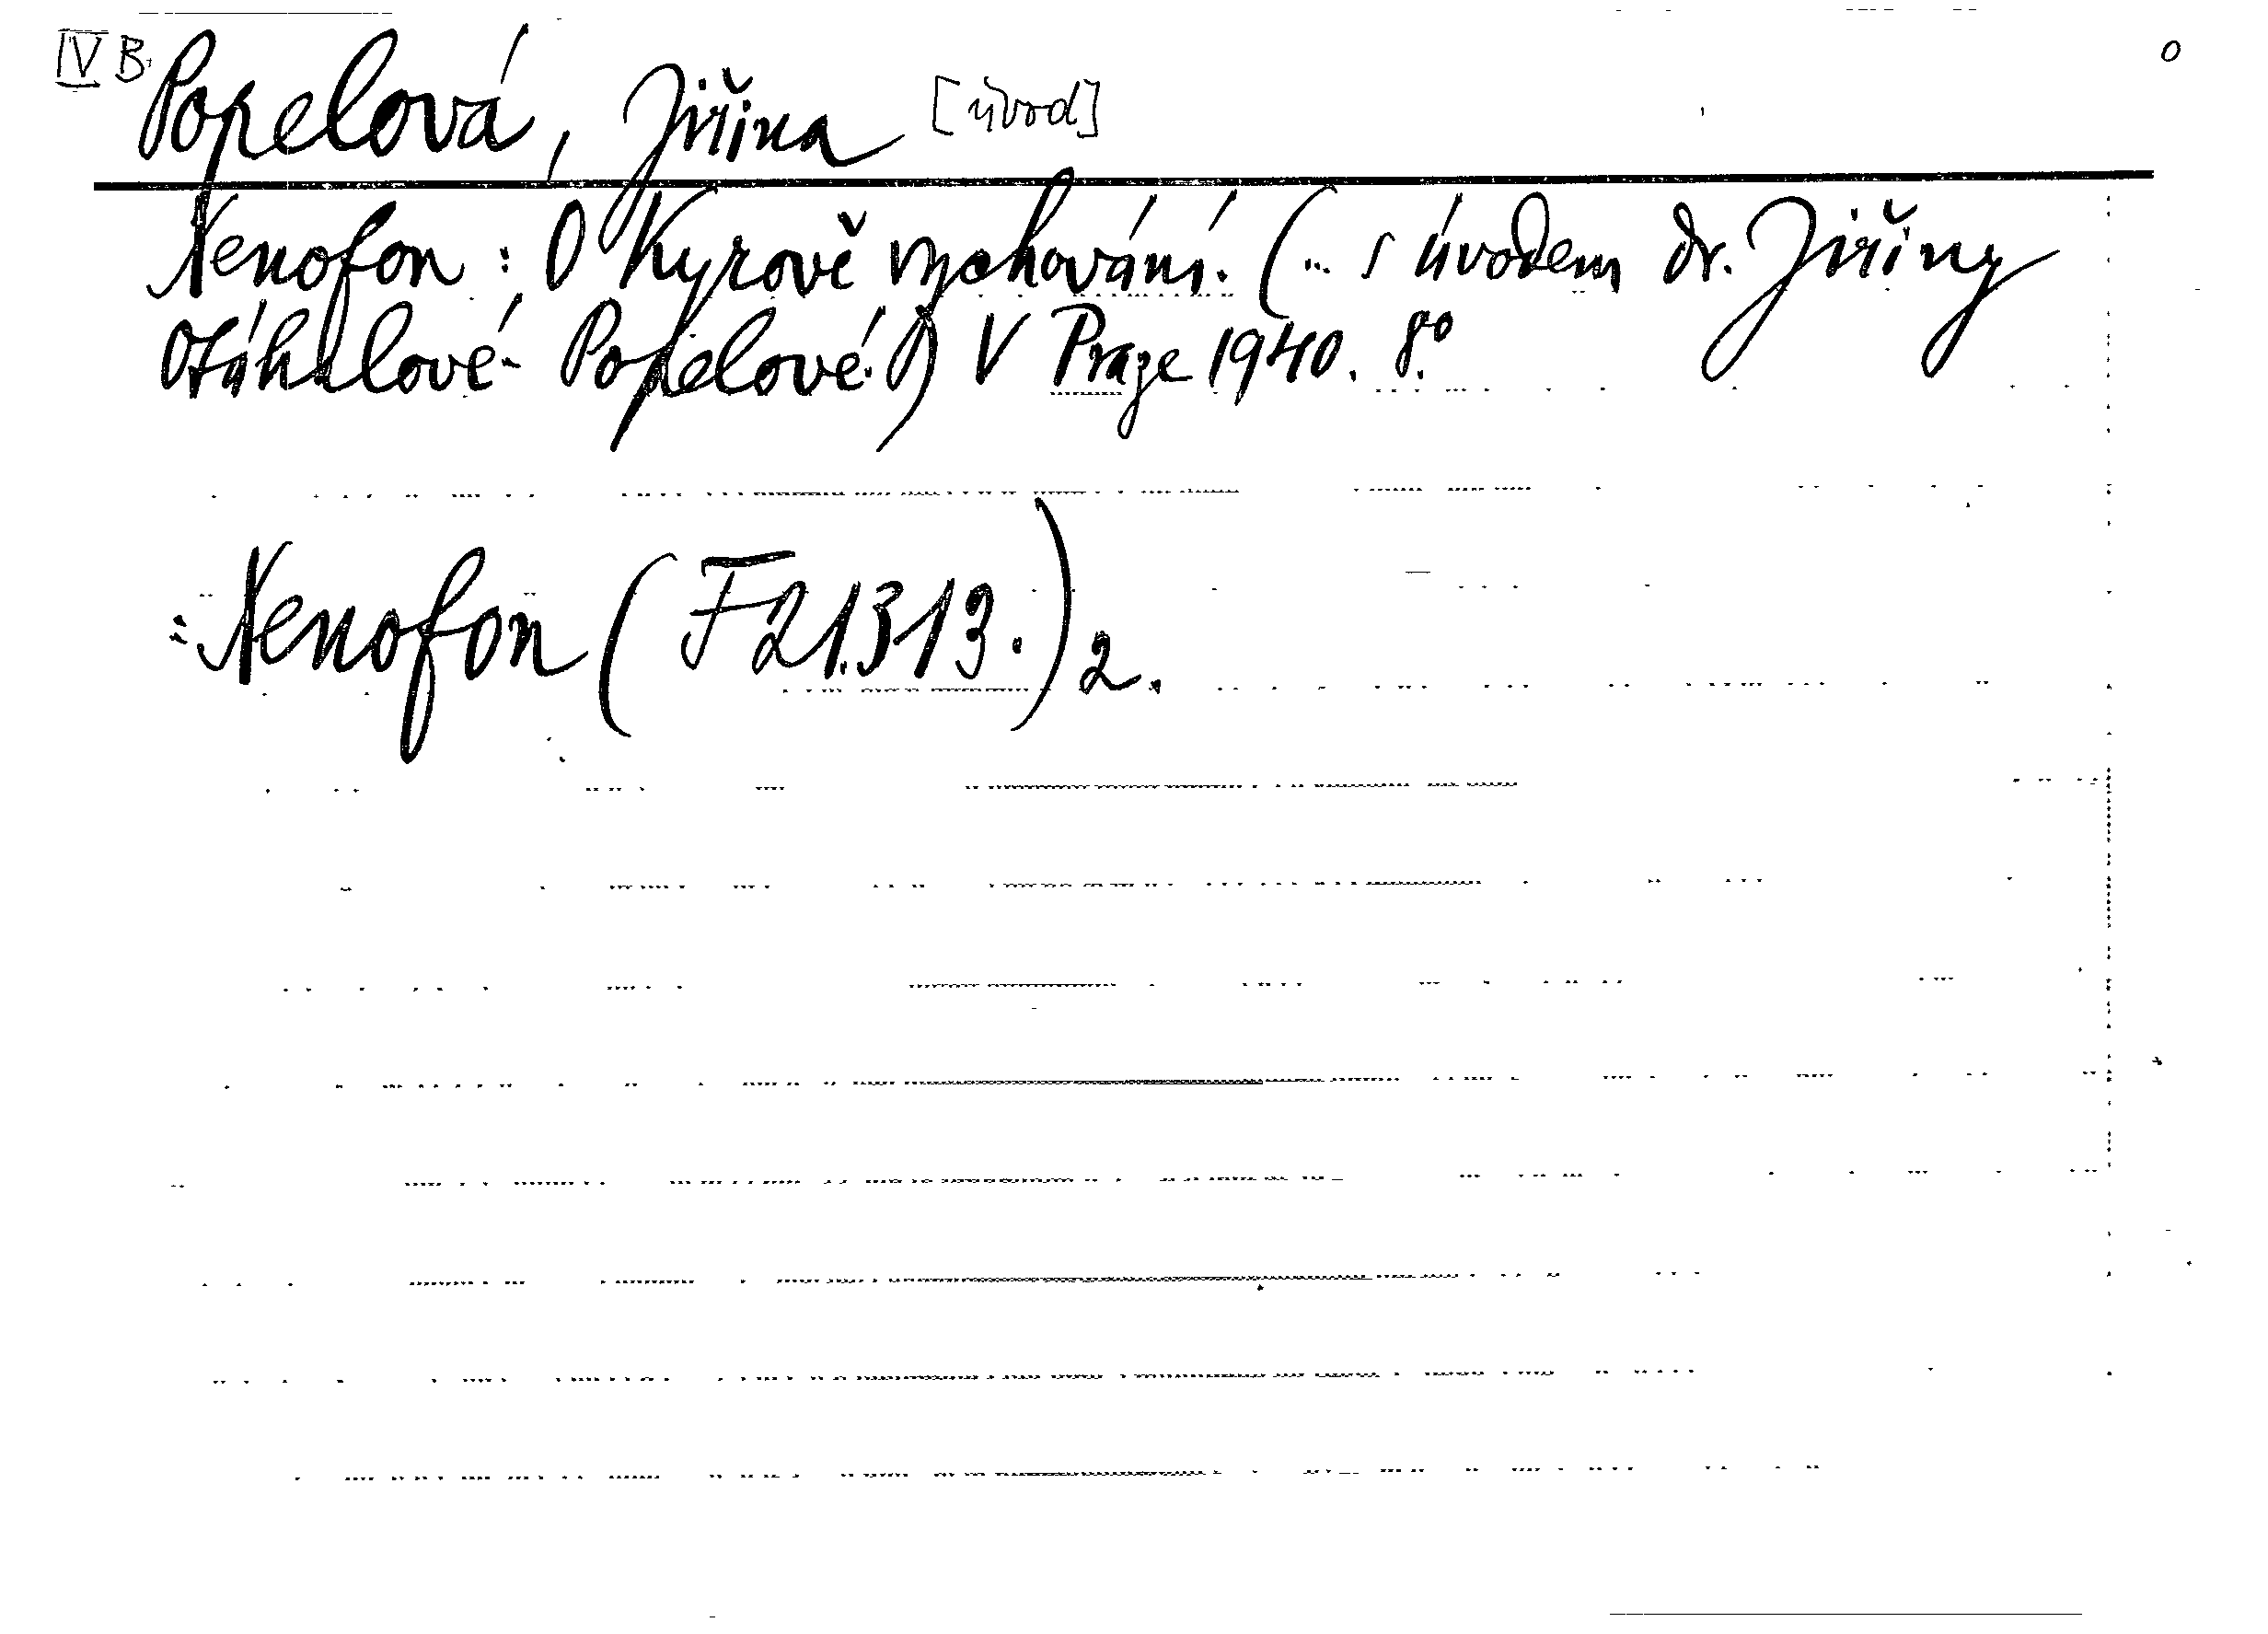 IV B. Popelová, Jiřina [úvod] o
Xenofon: O Kyrově vychování. (... s úvodem dr. Jiřiny
Otáhalové-Popelové.) V Praze 1940. 8°.
: Xenofon (F 21.313.) 2.